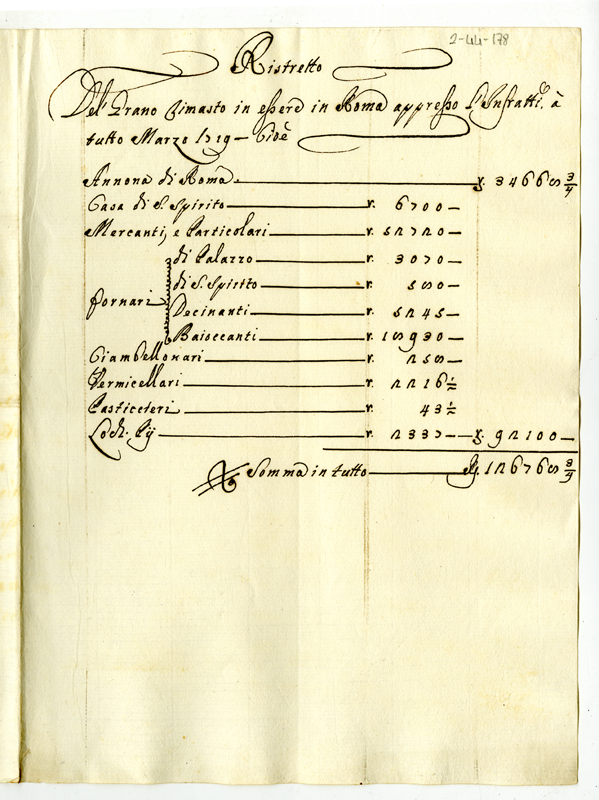 2-44-178
Ristretto
Del' Grano Rimasto in essere in Roma appresso l'Infratti. à
tutto Marzo 1719 – Cioè
Annona di Roma. r. 34668 3/4
Casa di S. Spirito r. 6700 –
Mercanti, e Particolari r. 52720 –
Fornari
di Palazzo r. 3070 –
di S. Spirito r. 580 –
Decinanti r. 5245 –
Baioccanti r. 18930 –
Ciambellonari r. 258 –
Vermicellari r. 2216 1/2
Pasticcieri r. 43 1/2
Lochi Pij r. 2337 – r. 92100 –
Somma in tutto r. 126768 3/4